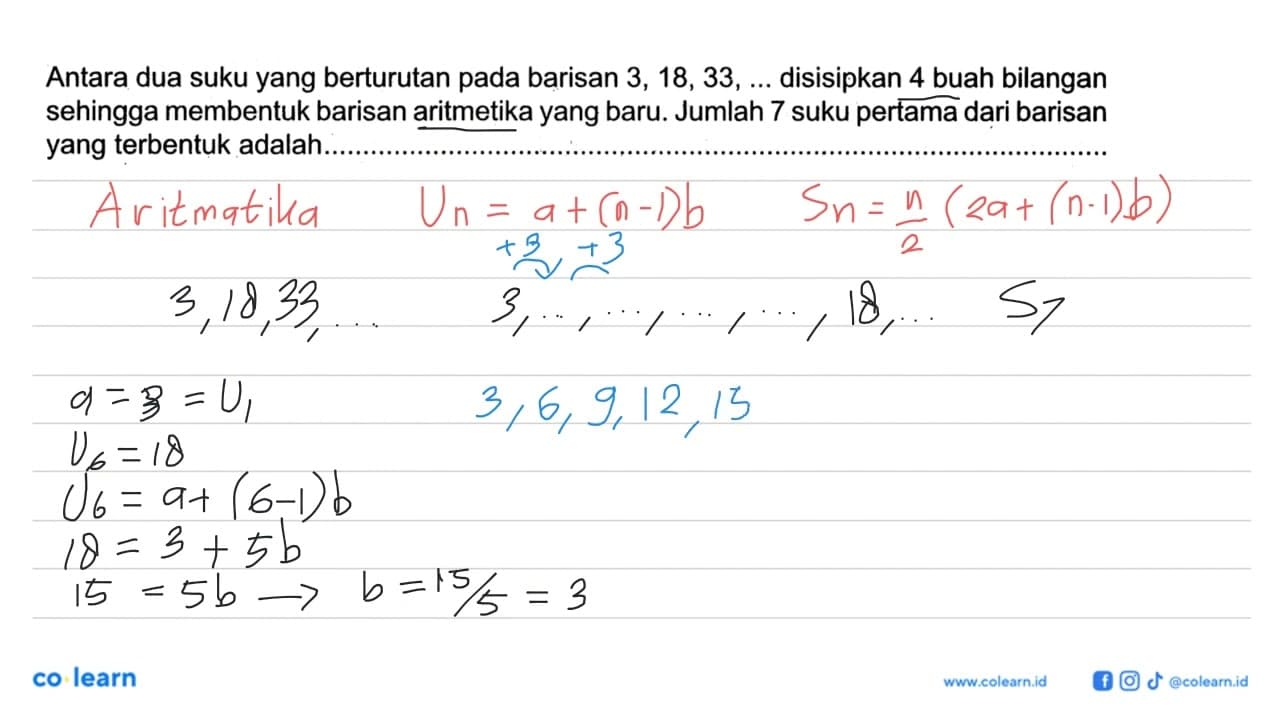 Antara dua suku yang berturutan pada barisan 3, 18, 33, ... disisipkan 4 buah bilangan
sehingga membentuk barisan aritmetika yang baru. Jumlah 7 suku pertama dari barisan
yang terbentuk adalah...............................................................................................
Aritmatika Un = a+(n-1)b Sn = n/2 (2a+(n-1)b)
+3 +3
3, 18, 33, ... 3, ..., ..., ..., ..., 18, ... S7
a = 3 = U1 3, 6, 9, 12, 15
U6 = 18
U6 = a+ (6-1)b
18 = 3 + 5b
15 = 5b → b = 15/5 = 3
co learn www.colearn.id @colearn.id